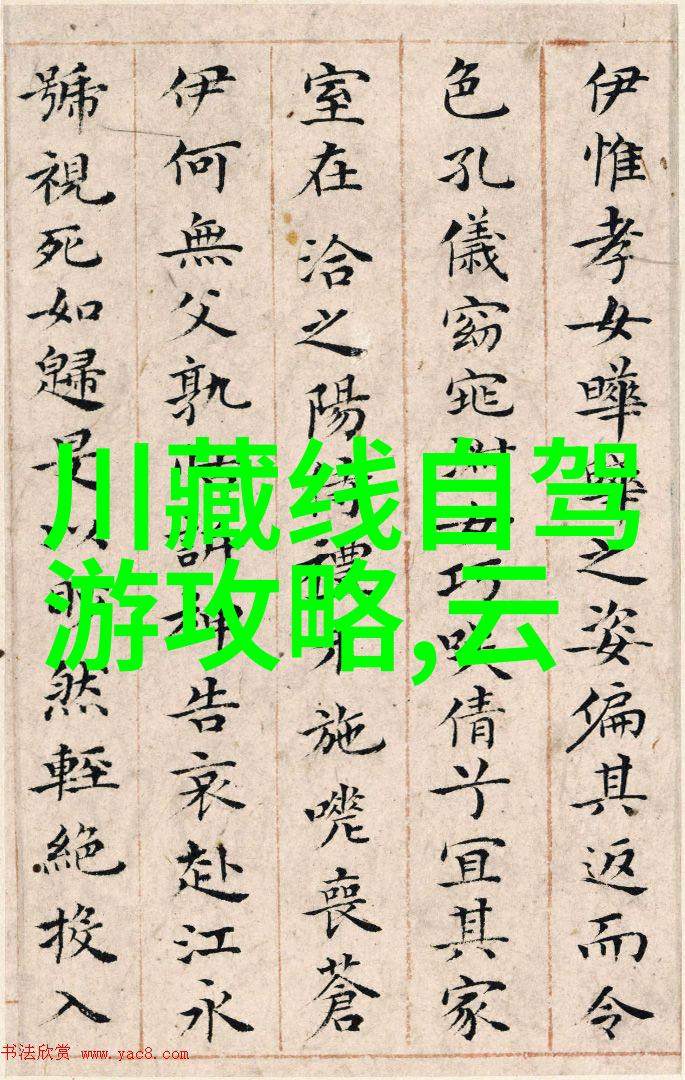 川藏线自驾
游攻略,云
伊惟孝女曄曄之姿偏其返而令
色孔儀窈窕淑女巧咲倩兮宜其家
室在洽之陽待禮未施嗟喪蒼
伊何無父孰怙訴神告哀赴江永
號視死如歸是以眇然輕絕投入
书法欣赏 www.yac8.com